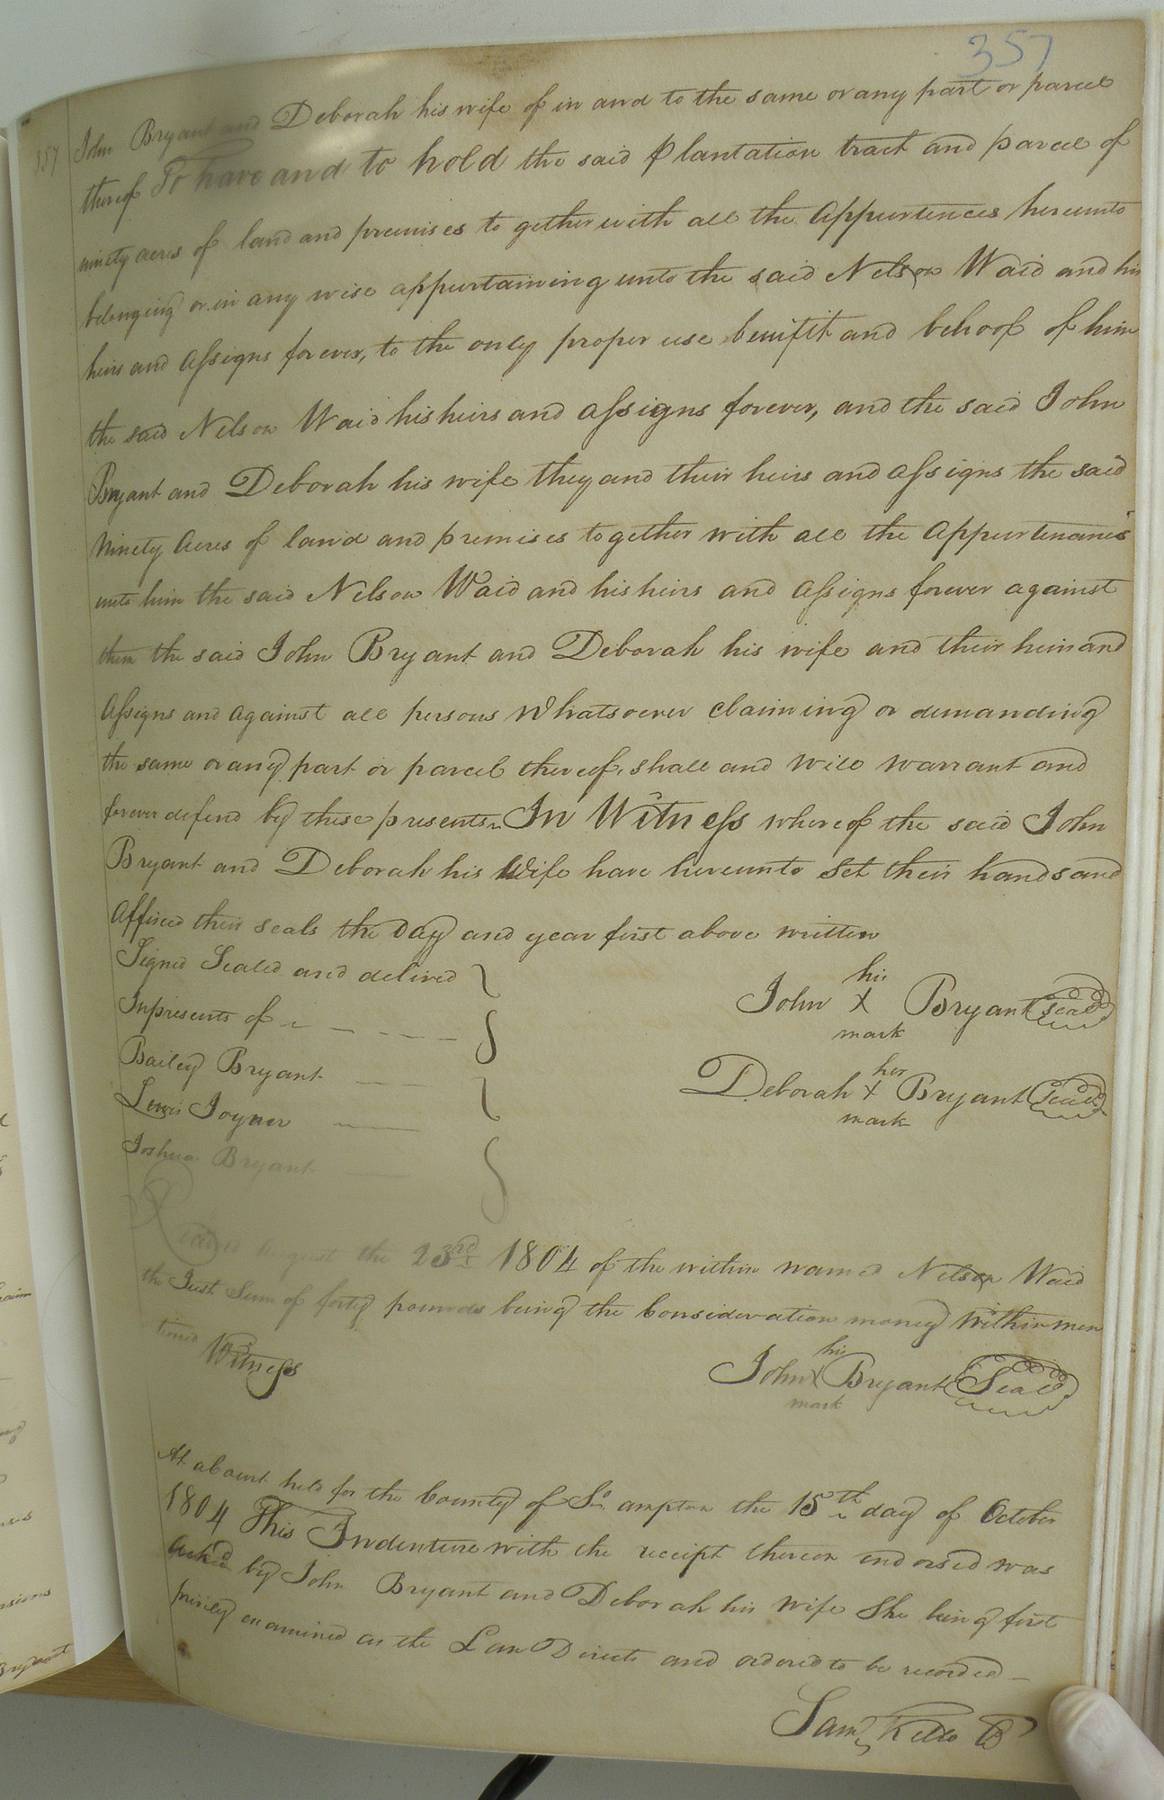 357
357 John Bryant and Deborah his wife of in and to the same or any part or parcel
thereof To have and to hold the said plantation tract and parcel of
ninety acres of land and premises to gether with all the appurtences hereunto
belonging or in any wise appurtaining unto the said Nelson Waid and his
heirs and assigns forever, to the only proper use benifit and behoof of him
the said Nelson Waid his heirs and assigns forever, and the said John
Bryant and Deborah his wife they and their heirs and assigns the said
Ninety acres of land and premises together with all the appurtenances
unto him the said Nelson Waid and his heirs and assigns forever against
them the said John Bryant and Deborah his wife and their heirs and
assigns and against all persons Whatsoever claiming or demanding
the same or any part or parcel thereof, shall and will warrant and
forever defend by these presents In Witness whereof the said John
Bryant and Deborah his Wife have hereunto set their hands and
affixed their seals the day and year first above written
Signed Sealed and delived
Inpresents of
Bailey Bryant
Lewis Joyner
Joshua Bryant
his
John X Bryant Seal
mark
her
Deborah X Bryant Seal
mark
August the 23rd 1804 of the within named Nelson Waid
the Just Sum of forty pounds being the Consideration money within men
tioned Witness
his
John X Bryant Seal
mark
At a Court held for the County of So ampton the 15th day of October
1804 This Indenture with the receipt thereon endorsed was
ackd by John Bryant and Deborah his Wife She being first
privily examined as the Law Directs and ordered to be recorded
Saml Kello